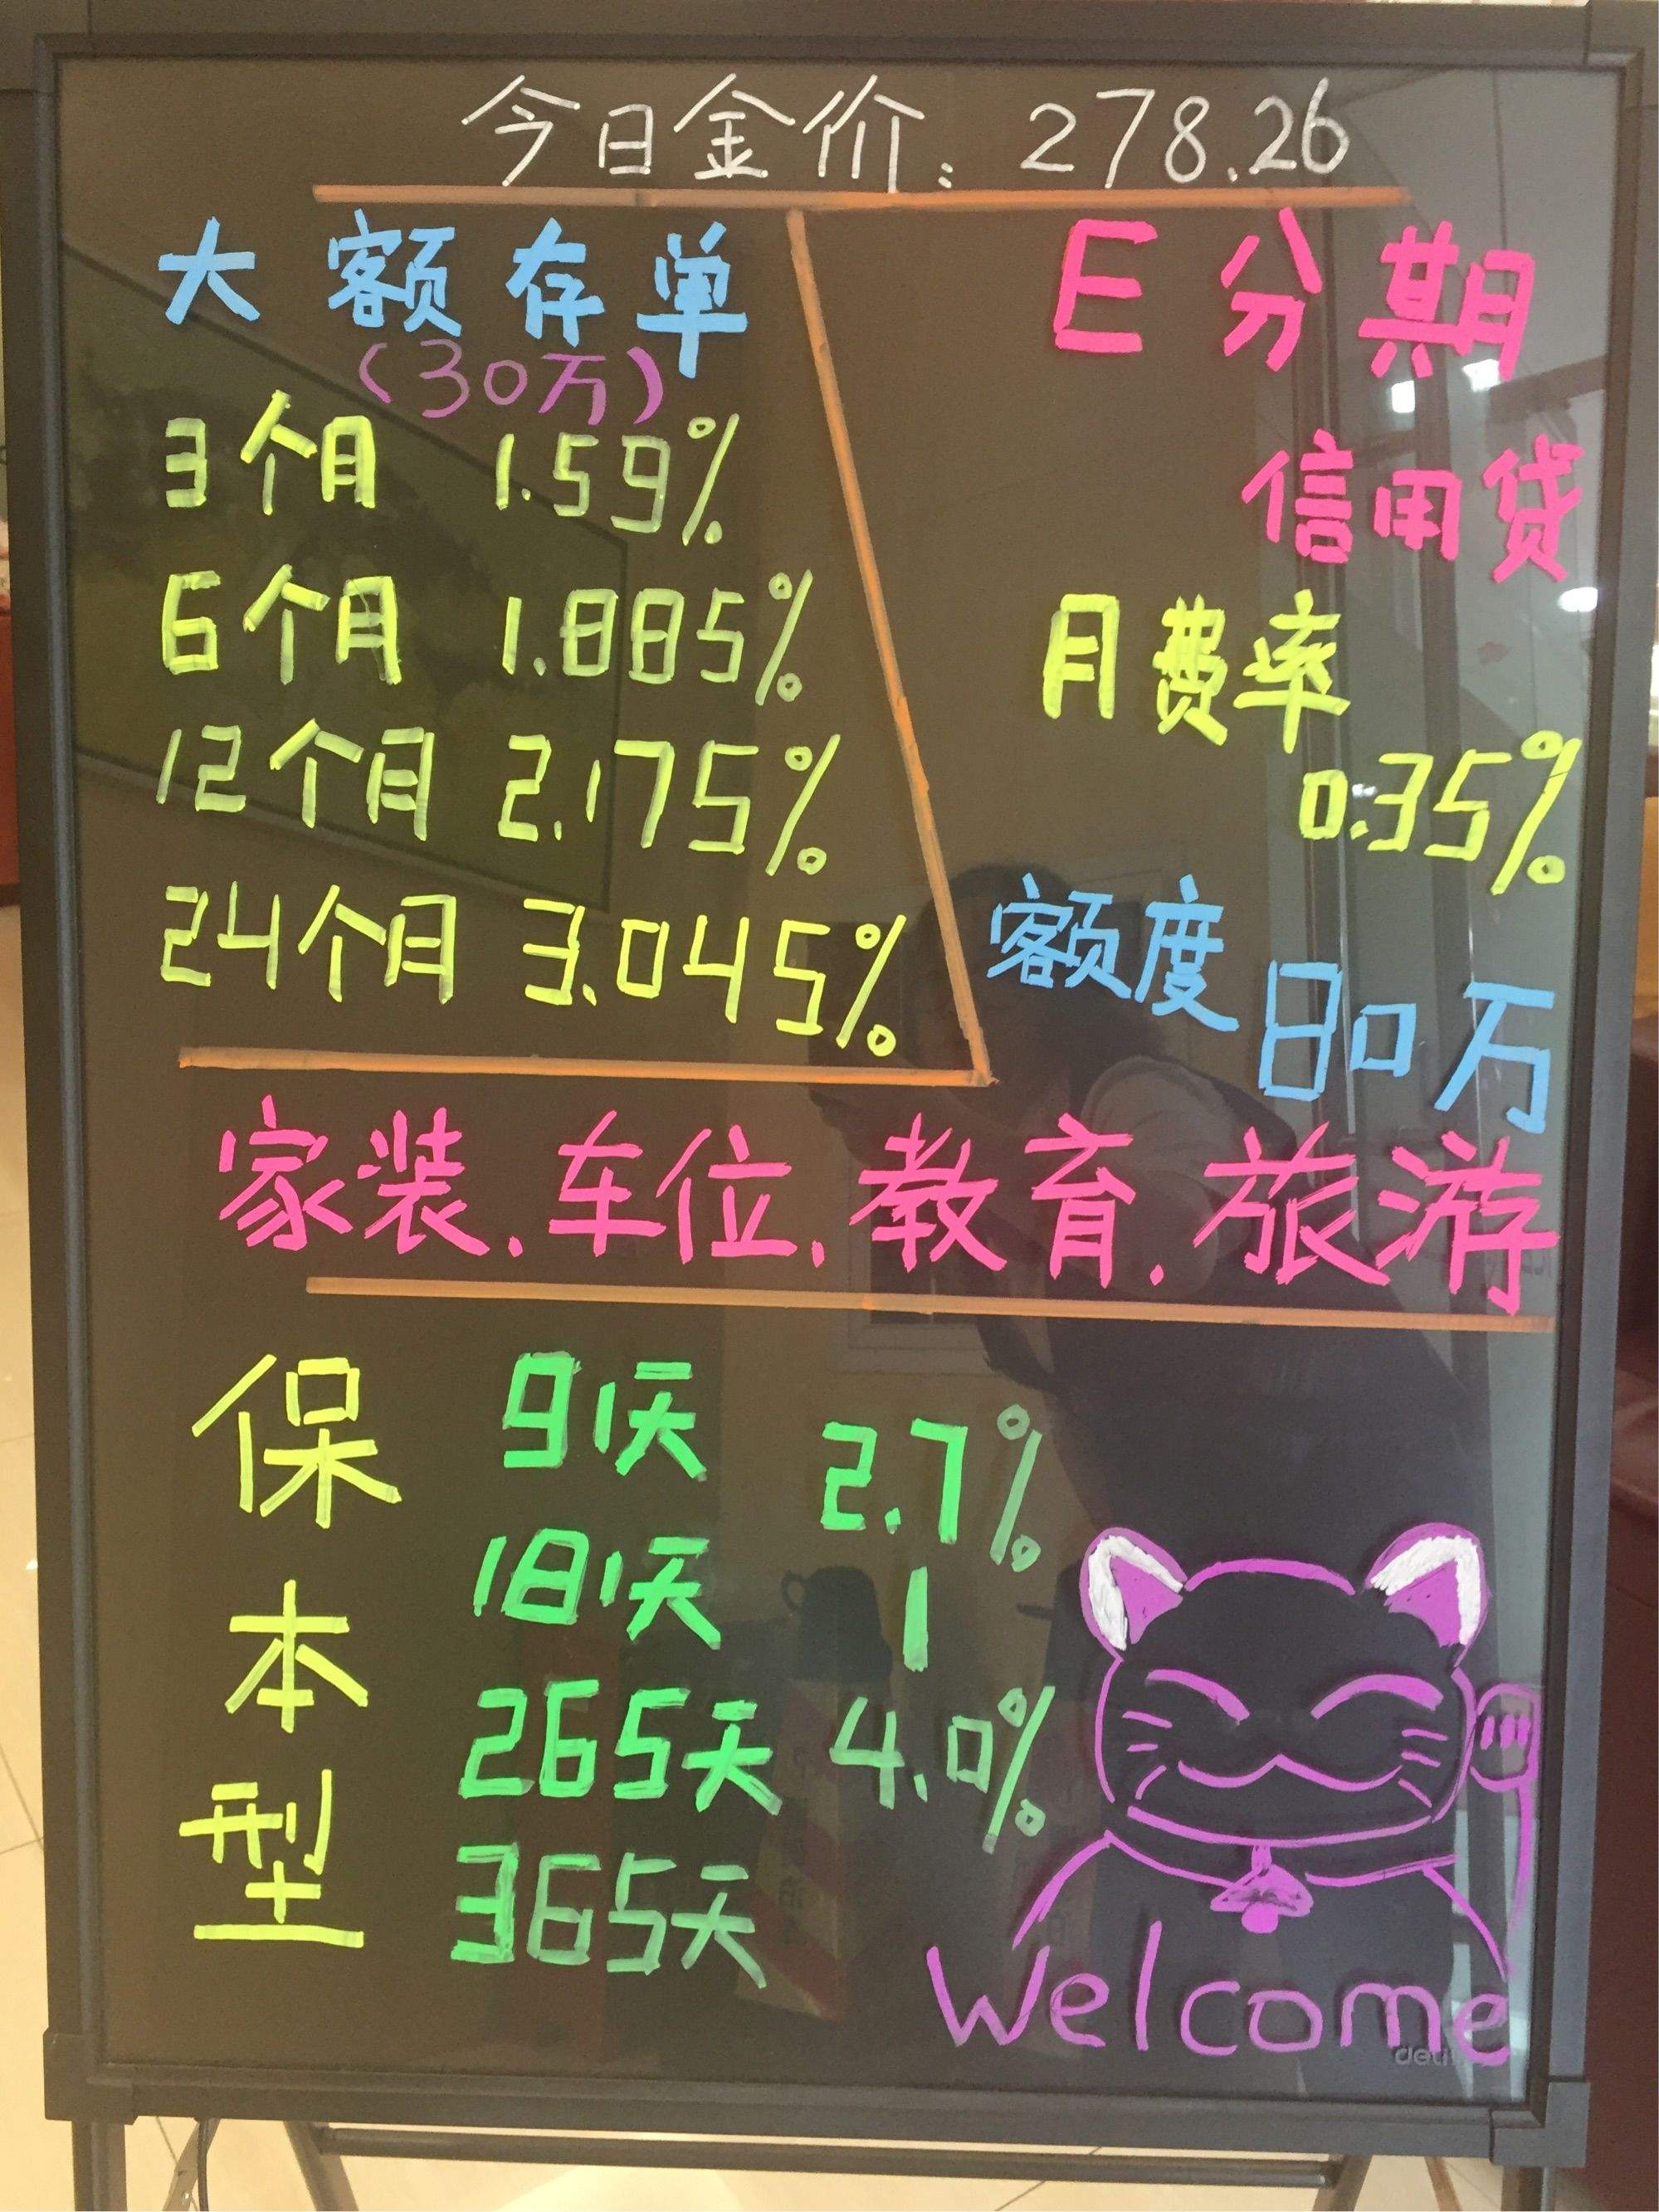 今日金价：278.26
大额存单
（30万）
3个月 1.59%
6个月 1.885%
12个月 2.175%
24个月 3.045%
E分期
信用贷
月费率
0.35%
额度80万
家装.车位.教育.旅游
保本型
91天
181天
265天
365天
2.7%
|
4.0%
Welcome
deli